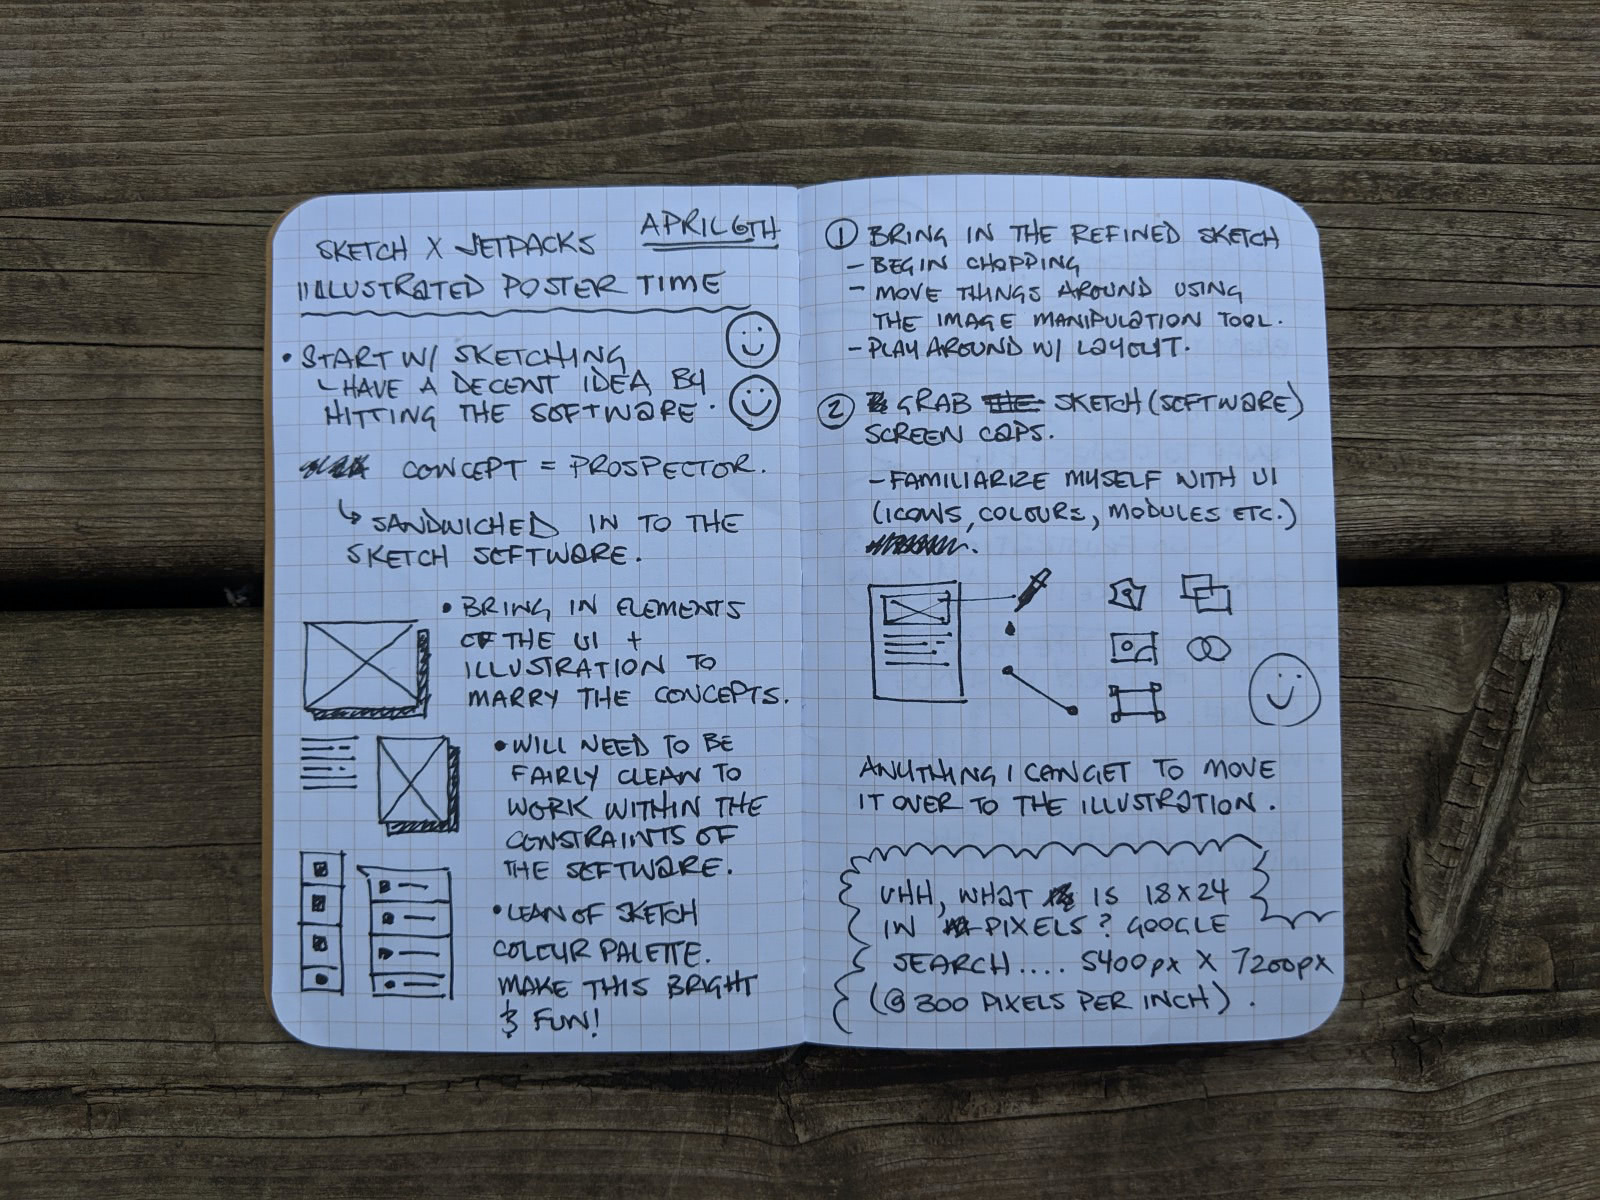 APRIL 6TH
SKETCH X JETPACKS
ILLUSTRATED POSTER TIME
• START W/ SKETCHING
HAVE A DECENT IDEA BY
HITTING THE SOFTWARE.
CONCEPT = PROSPECTOR.
↳ SANDWICHED IN TO THE
SKETCH SOFTWARE.
• BRING IN ELEMENTS
OF THE UI +
ILLUSTRATION TO
MARRY THE CONCEPTS.
• WILL NEED TO BE
FAIRLY CLEAN TO
WORK WITHIN THE
CONSTRAINTS OF
THE SOFTWARE.
• LEAN OF SKETCH
COLOUR PALETTE.
MAKE THIS BRIGHT
& FUN!
① BRING IN THE REFINED SKETCH
- BEGIN CHOPPING
- MOVE THINGS AROUND USING
THE IMAGE MANIPULATION TOOL.
- PLAY AROUND W/ LAYOUT.
② GRAB THE SKETCH (SOFTWARE)
SCREEN CAPS.
- FAMILIARIZE MYSELF WITH UI
(ICONS, COLOURS, MODULES ETC.)
ANYTHING I CAN GET TO MOVE
IT OVER TO THE ILLUSTRATION.
UHH, WHAT IS 18X24
IN PIXELS? GOOGLE
SEARCH.... 5400px X 7200px
(@ 300 PIXELS PER INCH).